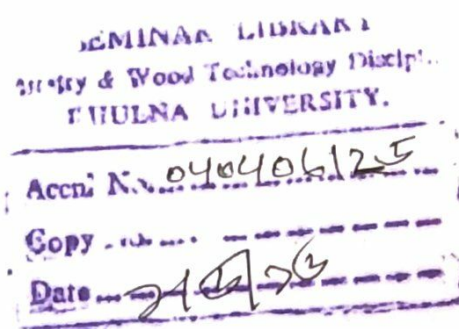 SEMINAR LIBRARY
Forestry & Wood Technology Discipline
KHULNA UNIVERSITY.
Accn. No. 040406125
Copy
Date